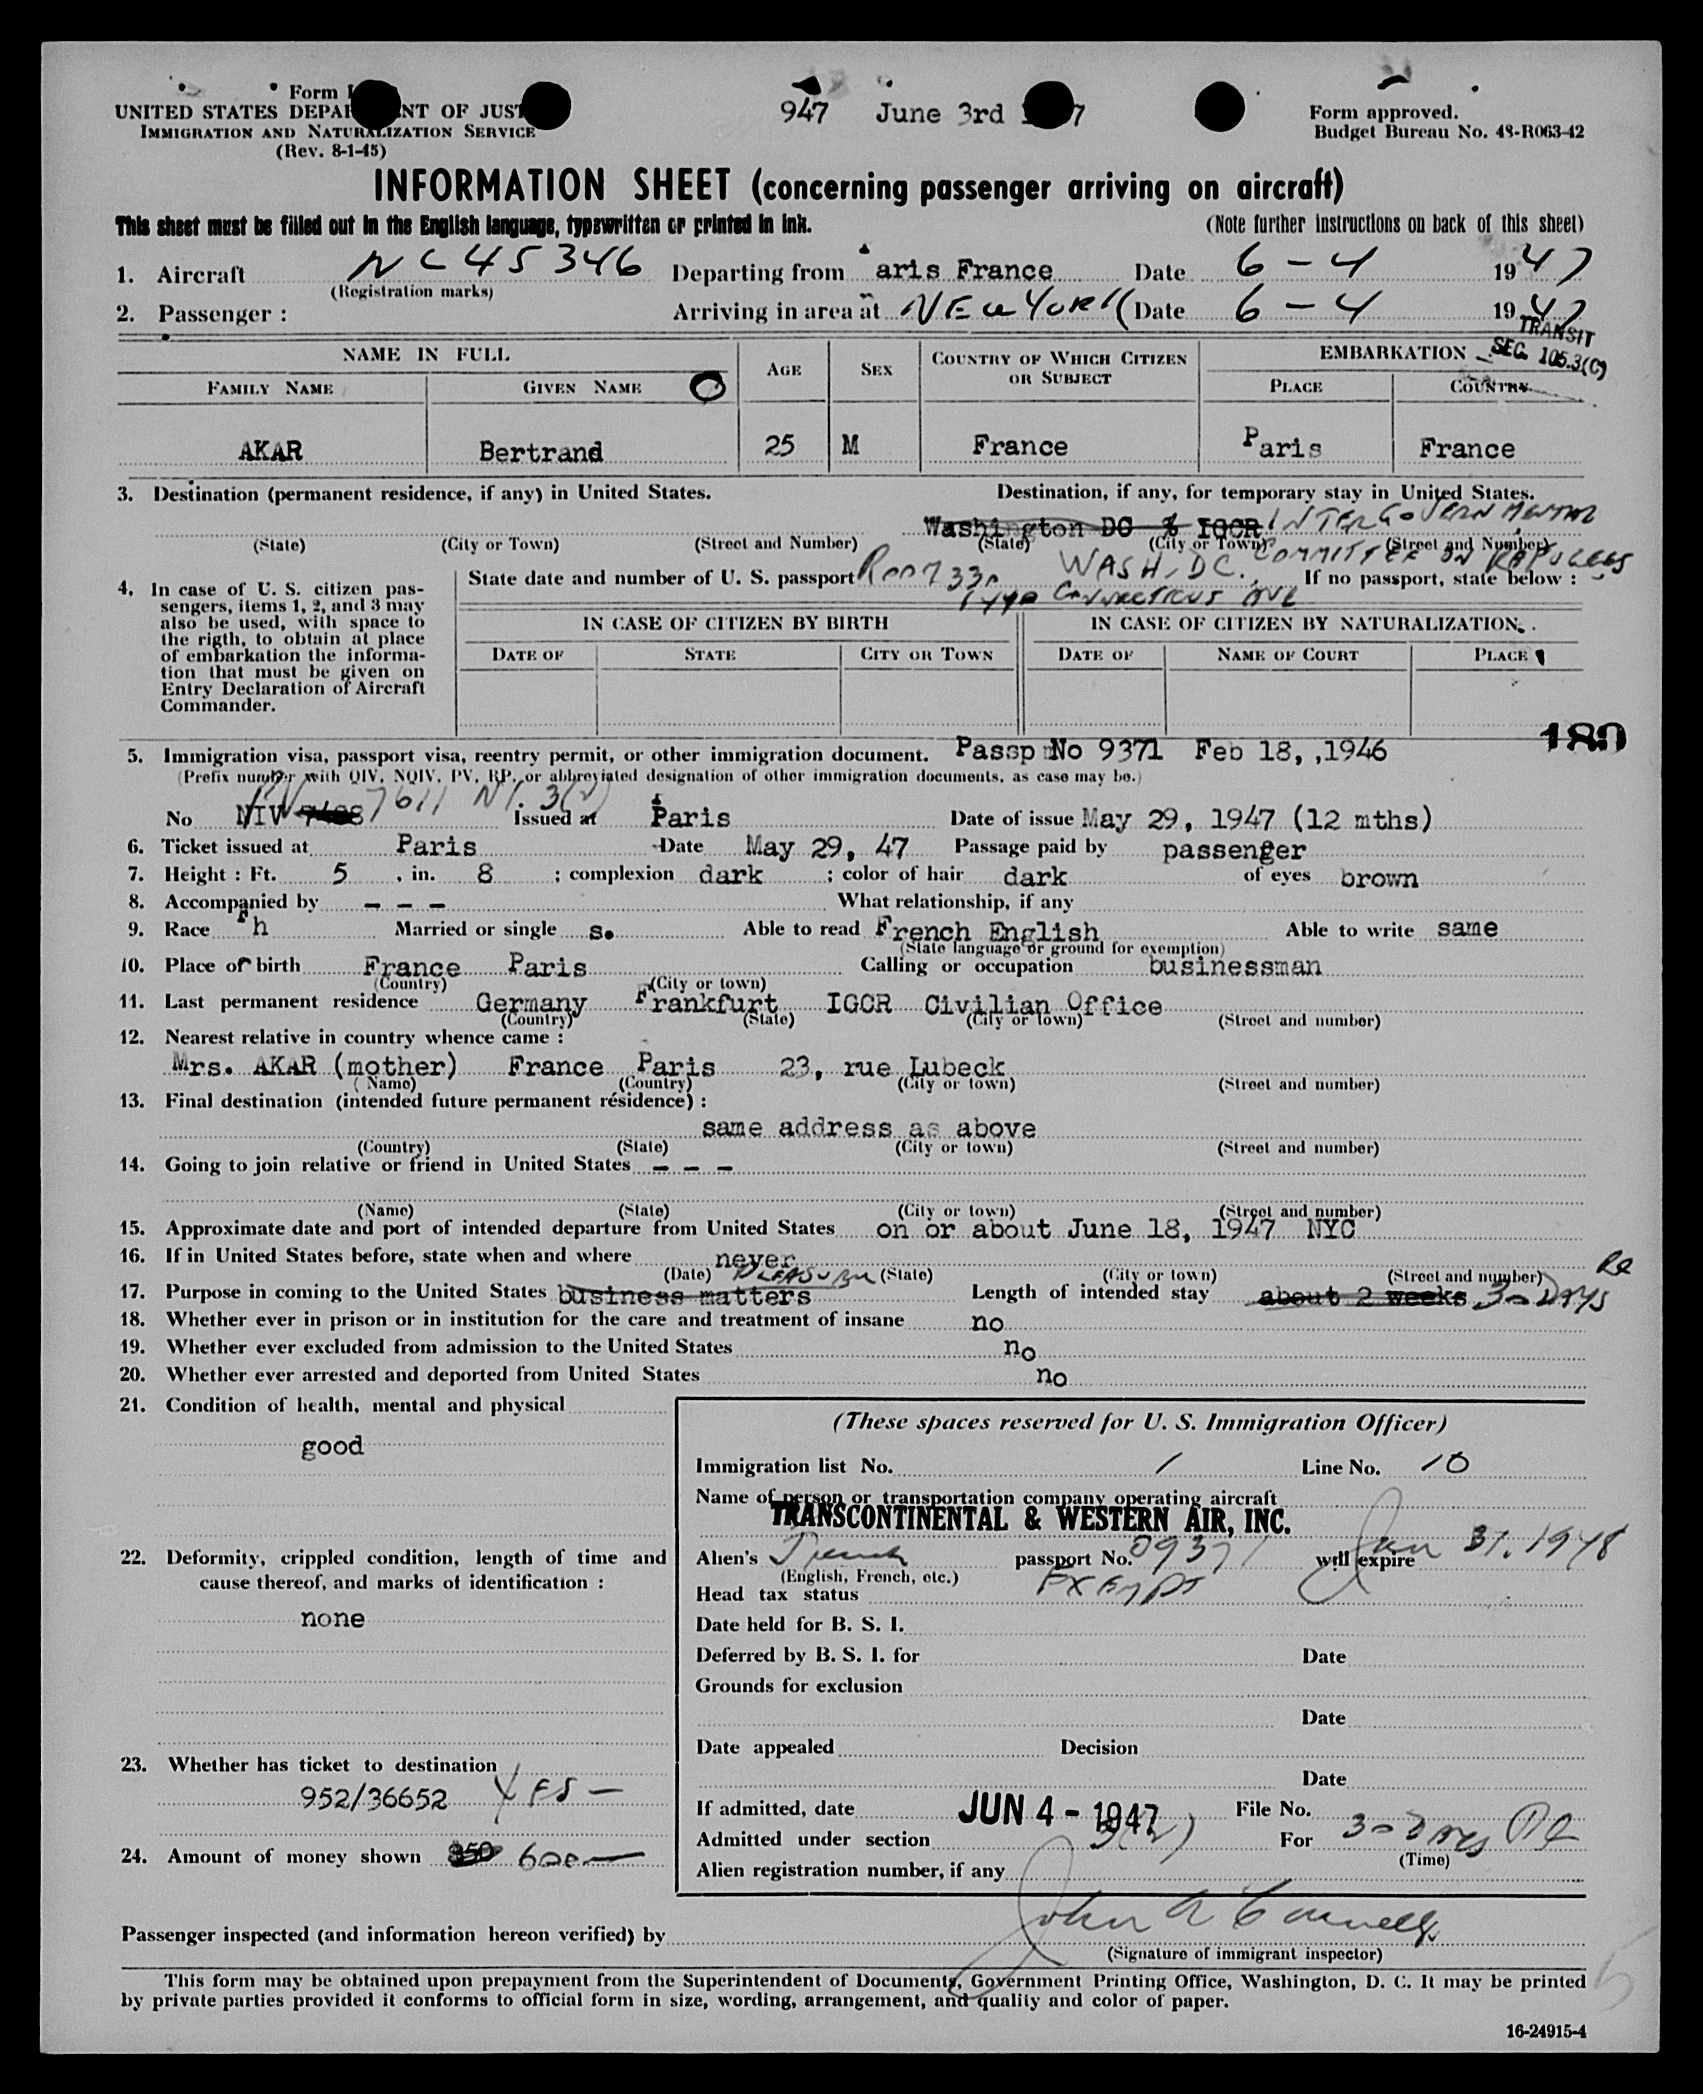 Form
947 June 3rd 7
Form approved.
UNITED STATES DEPAR NT OF JUST
Budget Bureau No. 43-R063-42
IMMIGRATION AND NATURALIZATION SERVICE
(Rev. 8-1-45)
INFORMATION SHEET (concerning passenger arriving on aircraft)
This sheet must be filled out in the English language, typewritten or printed in ink. (Note further instructions on back of this sheet)
1. Aircraft NC 45346 Departing from aris France Date 6-4 1947
(Registration marks)
2. Passenger : Arriving in area at NEW YORK Date 6-4 1947
TRANSIT
SEC. 105.3(C)
NAME IN FULL AGE SEX COUNTRY OF WHICH CITIZEN OR SUBJECT EMBARKATION
FAMILY NAME GIVEN NAME PLACE COUNTRY
AKAR Bertrand 25 M France Paris France
3. Destination (permanent residence, if any) in United States. Destination, if any, for temporary stay in United States.
Washington DC % IGCR INTERGOVERNMENTAL
(State) (City or Town) (Street and Number) (State) (City or Town) (Street and Number)
COMMITTEE ON REFUGEES
4. In case of U. S. citizen pas-
sengers, items 1, 2, and 3 may
also be used, with space to
the rigth, to obtain at place
of embarkation the informa-
tion that must be given on
Entry Declaration of Aircraft
Commander.
State date and number of U. S. passport Room 330 WASH, DC. If no passport, state below :
CONNECTICUT AVE
IN CASE OF CITIZEN BY BIRTH IN CASE OF CITIZEN BY NATURALIZATION
DATE OF STATE CITY OR TOWN DATE OF NAME OF COURT PLACE
180
5. Immigration visa, passport visa, reentry permit, or other immigration document. Passp No 9371 Feb 18, ,1946
(Prefix number with QIV, NQIV, PV, RP, or abbreviated designation of other immigration documents, as case may be.)
7611 3(2)
No NIV Issued at Paris Date of issue May 29, 1947 (12 mths)
6. Ticket issued at Paris Date May 29, 47 Passage paid by passenger
7. Height : Ft. 5 , in. 8 ; complexion dark ; color of hair dark of eyes brown
8. Accompanied by - - - What relationship, if any
9. Race Fh Married or single s. Able to read French English Able to write same
(State language or ground for exemption)
10. Place of birth France Paris Calling or occupation businessman
(Country) (City or town)
11. Last permanent residence Germany Frankfurt IGCR Civilian Office
(Country) (State) (City or town) (Street and number)
12. Nearest relative in country whence came :
Mrs. AKAR (mother) France Paris 23, rue Lubeck
(Name) (Country) (City or town) (Street and number)
13. Final destination (intended future permanent résidence) :
same address as above
(Country) (State) (City or town) (Street and number)
14. Going to join relative or friend in United States - - -
(Name) (State) (City or town) (Street and number)
15. Approximate date and port of intended departure from United States on or about June 18, 1947 NYC
16. If in United States before, state when and where never
(Date) (State) (City or town) (Street and number)
PLEASURE
17. Purpose in coming to the United States business matters Length of intended stay about 2 weeks 30 DAYS
18. Whether ever in prison or in institution for the care and treatment of insane no
19. Whether ever excluded from admission to the United States no
20. Whether ever arrested and deported from United States no
21. Condition of health, mental and physical
good
22. Deformity, crippled condition, length of time and
cause thereof, and marks of identification :
none
23. Whether has ticket to destination
952/36652 YES -
24. Amount of money shown 350 600
(These spaces reserved for U. S. Immigration Officer)
Immigration list No. 1 Line No. 10
Name of person or transportation company operating aircraft
TRANSCONTINENTAL & WESTERN AIR, INC.
Alien's French passport No. 09371 will expire Jan 31, 1948
(English, French, etc.)
Head tax status EXEMPT
Date held for B. S. I.
Deferred by B. S. I. for Date
Grounds for exclusion
Date
Date appealed Decision
Date
If admitted, date JUN 4 - 1947 File No.
Admitted under section 3(2) For 30 DAYS
(Time)
Alien registration number, if any
Passenger inspected (and information hereon verified) by
(Signature of immigrant inspector)
This form may be obtained upon prepayment from the Superintendent of Documents, Government Printing Office, Washington, D. C. It may be printed
by private parties provided it conforms to official form in size, wording, arrangement, and quality and color of paper.
16-24915-4